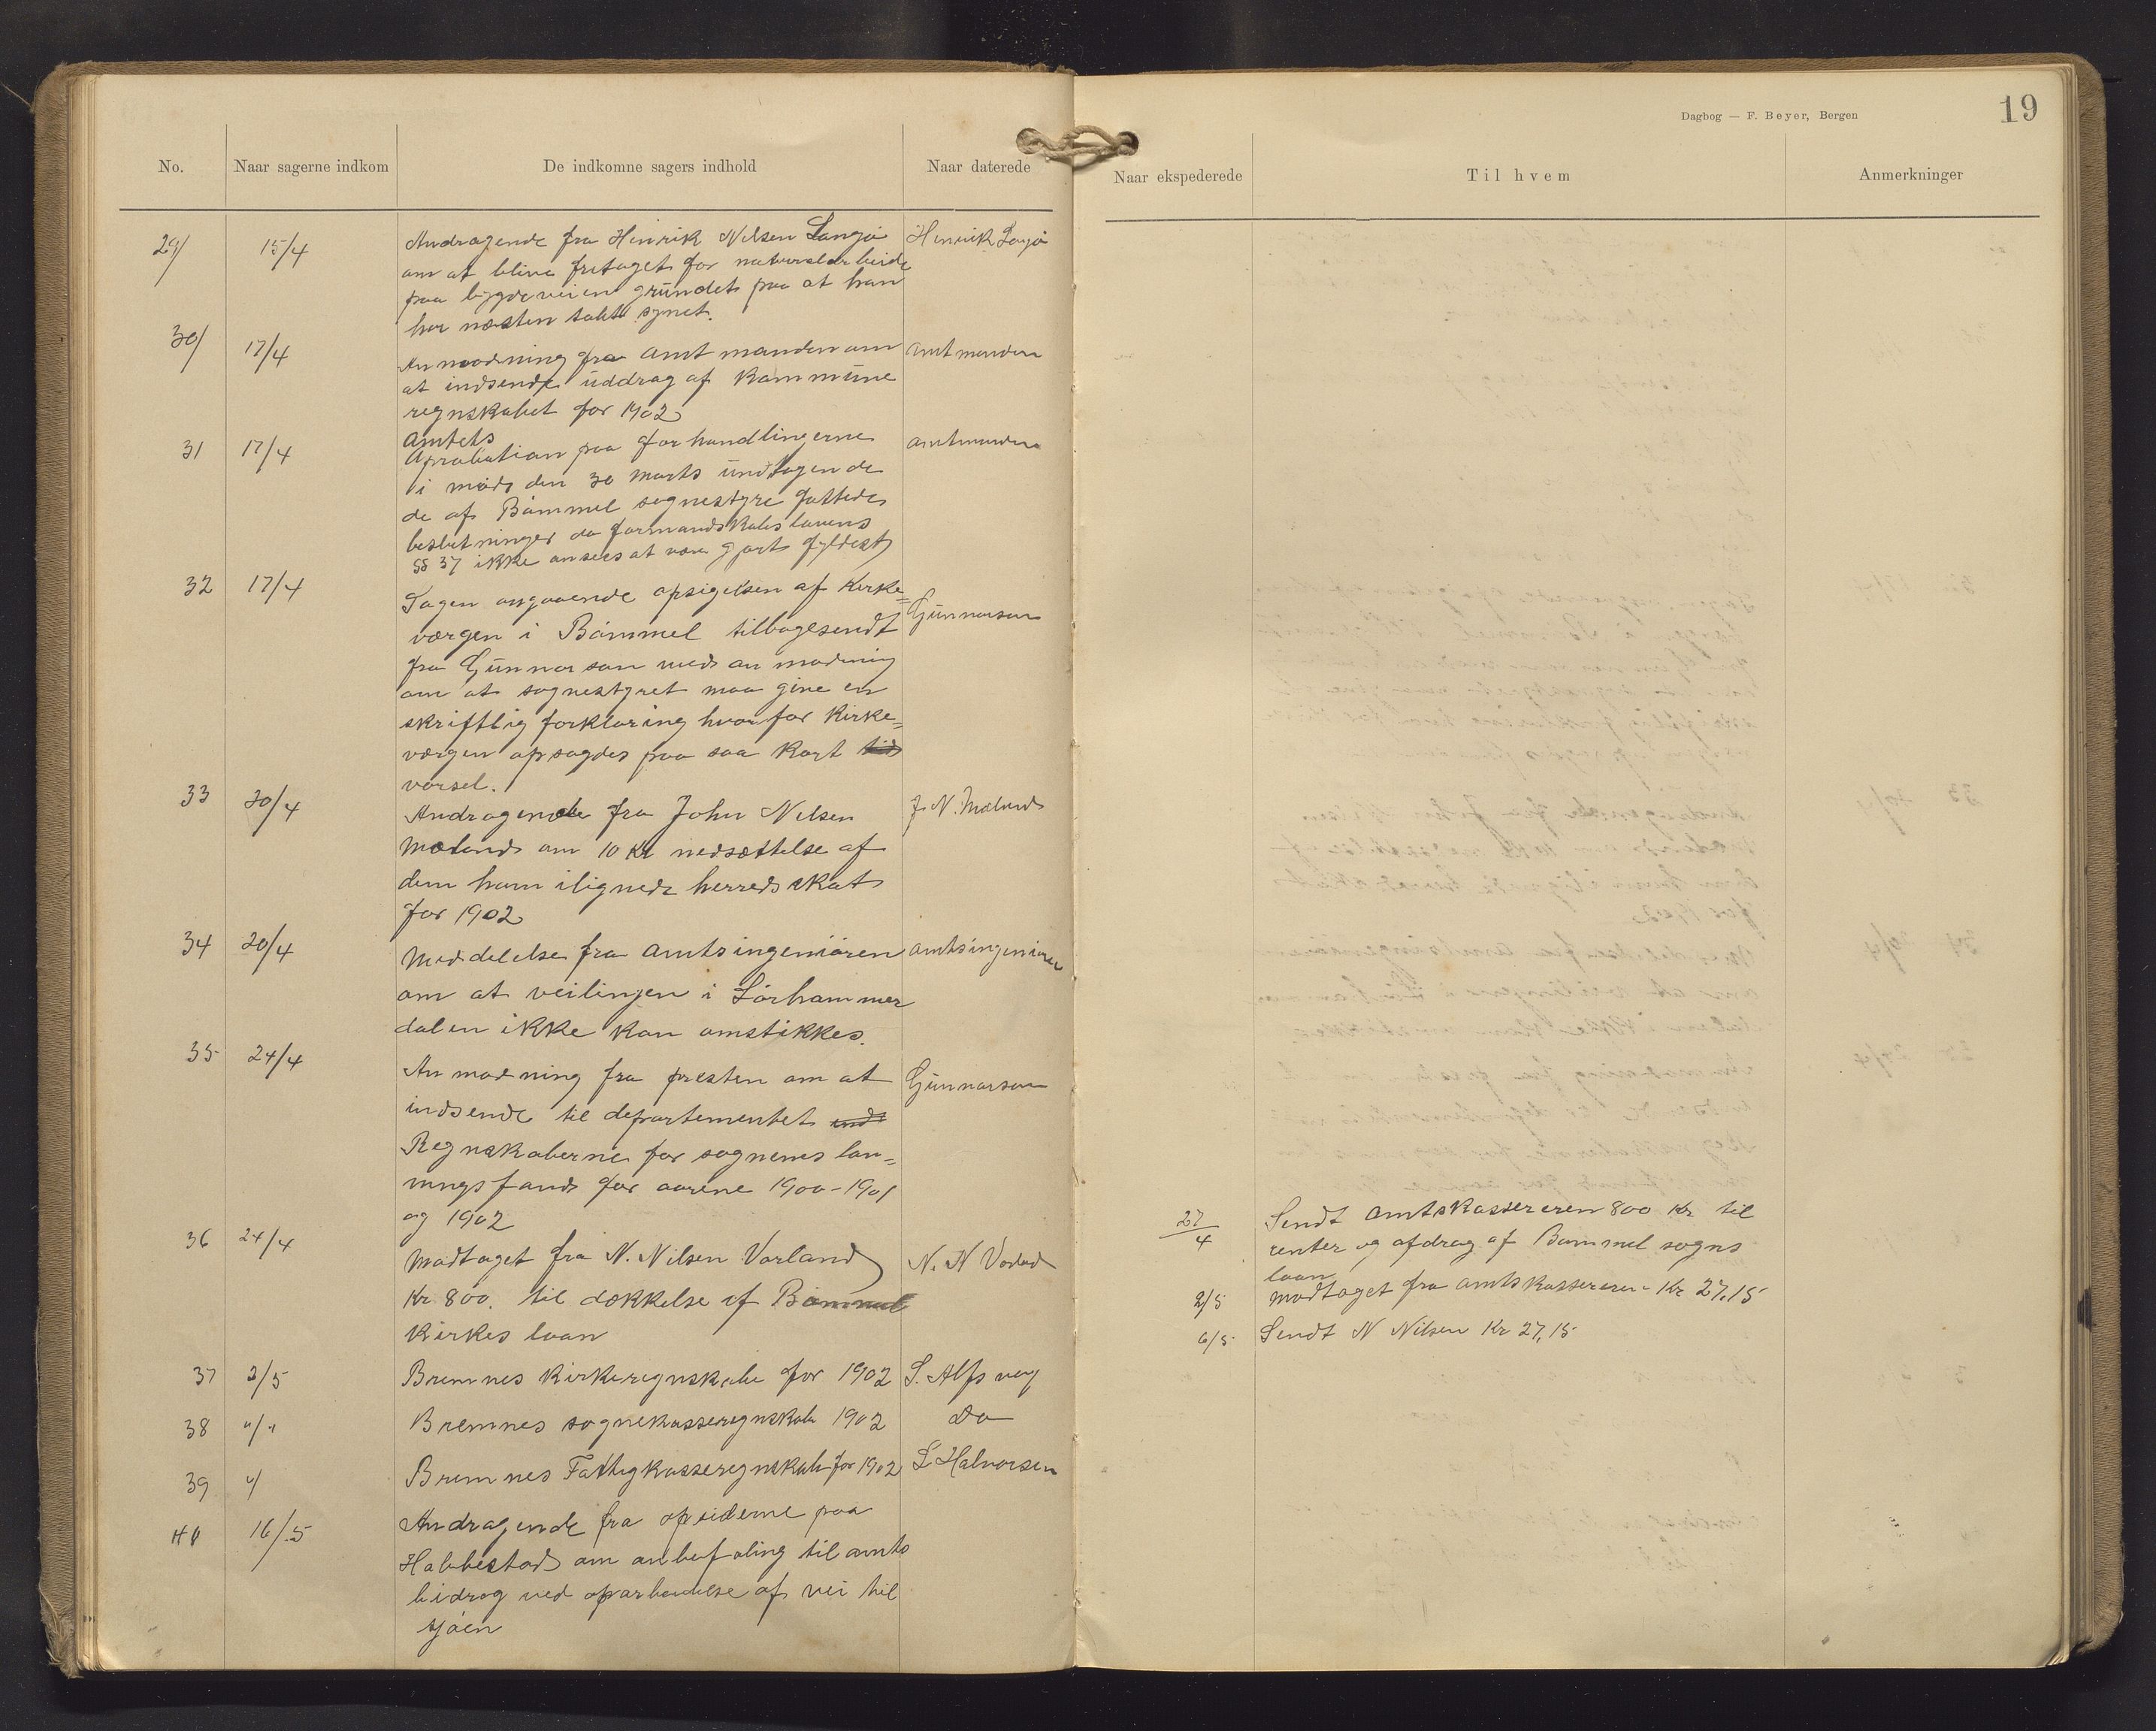 No.
Naar sagerne indkom
De indkomne sagers indhold
Naar daterede
29/
15/4
Andragende fra Henrik Nilsen Langö
Henrik Langö
om at blive fritaget for naturalarbeide
paa bygdeveiene grundet paa at han
har næsten tabt synet.
30/
17/4
Anmodning fra amtmanden om
amtmanden
at indsende uddrag af kommune
regnskabet for 1902
31
17/4
Amtets
Aprobation paa forhandlingerne
amtmanden
i möde den 30 marts undtagende
de af Bömmel sognestyre fattede
beslutninger da formandskabslovens
§§ 37 ikke ansees at være gjort fyldest
32
17/4
Sagen angaaende opsigelsen af Kirke=
Gunnarson
værgen i Bömmel tilbagesendt
fra Gunnarson med anmodning
om at sognestyret maa give en
skriftlig forklaring hvorfor Kirke=
værgen opsagdes paa saa kort tid
varsel.
33
20/4
Andragende fra John Nilsen
J. N. Mæland
Mæland om 10 Kr nedsættelse af
den ham ilignede herredsskat
for 1902
34
20/4
Meddelelse fra amtsingeniören
amtsingeniören
om at veilinjen i Lörhammer
dalen ikke kan omstikkes.
35
24/4
Anmodning fra presten om at
Gunnarson
indsende til departementet ind
Regnskaberne for sognenes lön=
ningsfond for aarene 1900-1901
og 1902
36
24/4
Modtaget fra N. Nilsen Vorland
N. N Vorland
Kr 800. til dækkelse af Bömmel
Kirkes laan
37
2/5
Bremnes Kirkeregnskab for 1902
S. Alfsvaag
38
"/"
Bremnes sognekasseregnskab 1902
Do
39
"/
Bremnes Fattigkasseregnskab for 1902
L Halvorsen
40
16/5
Andragende fra opsidderne paa
Habbestad om anbefaling til amts
bidrag ved oparbeidelse af vei til
sjöen
Dagbog — F. Beyer, Bergen
19
Naar ekspederede
Til hvem
Anmerkninger
27/4
Sendt amtskassereren 800 Kr til
renter og afdrag af Bömmel sogns
laan
2/5
modtaget fra amtskassereren Kr 27,15
6/5
Sendt N Nilsen Kr 27,15